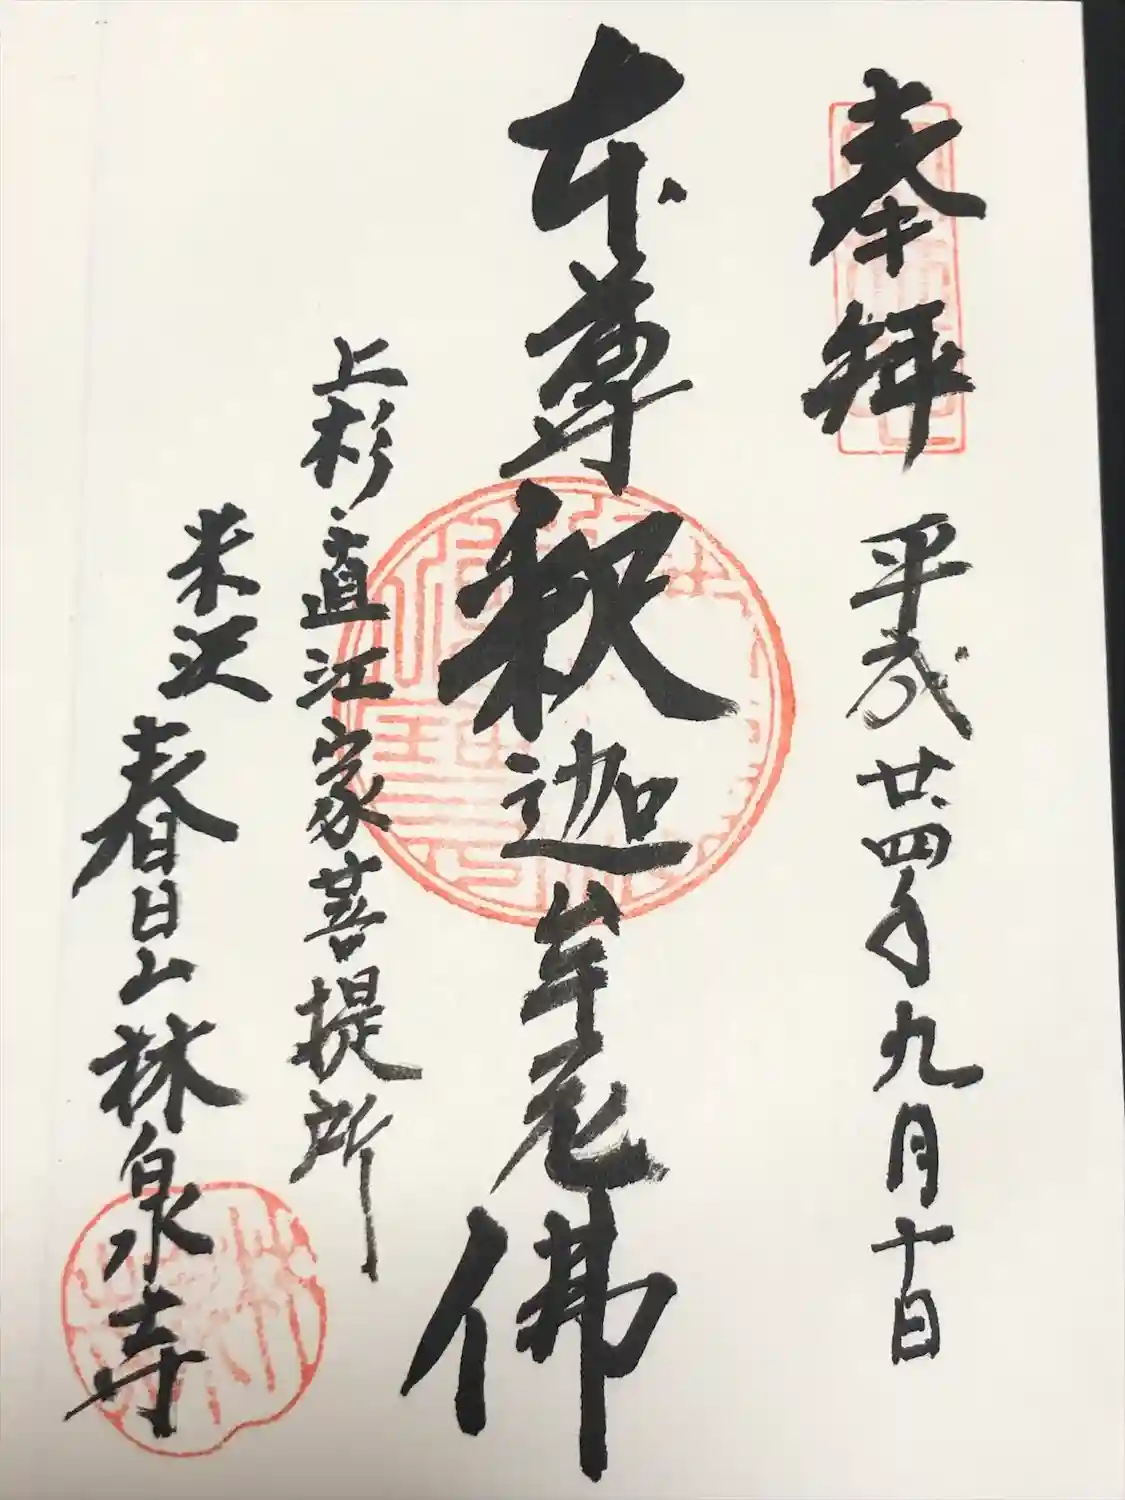 奉拝 平成廿四年九月十日
本尊釈迦牟尼佛
上杉・直江家菩提所
米沢 春日山林泉寺